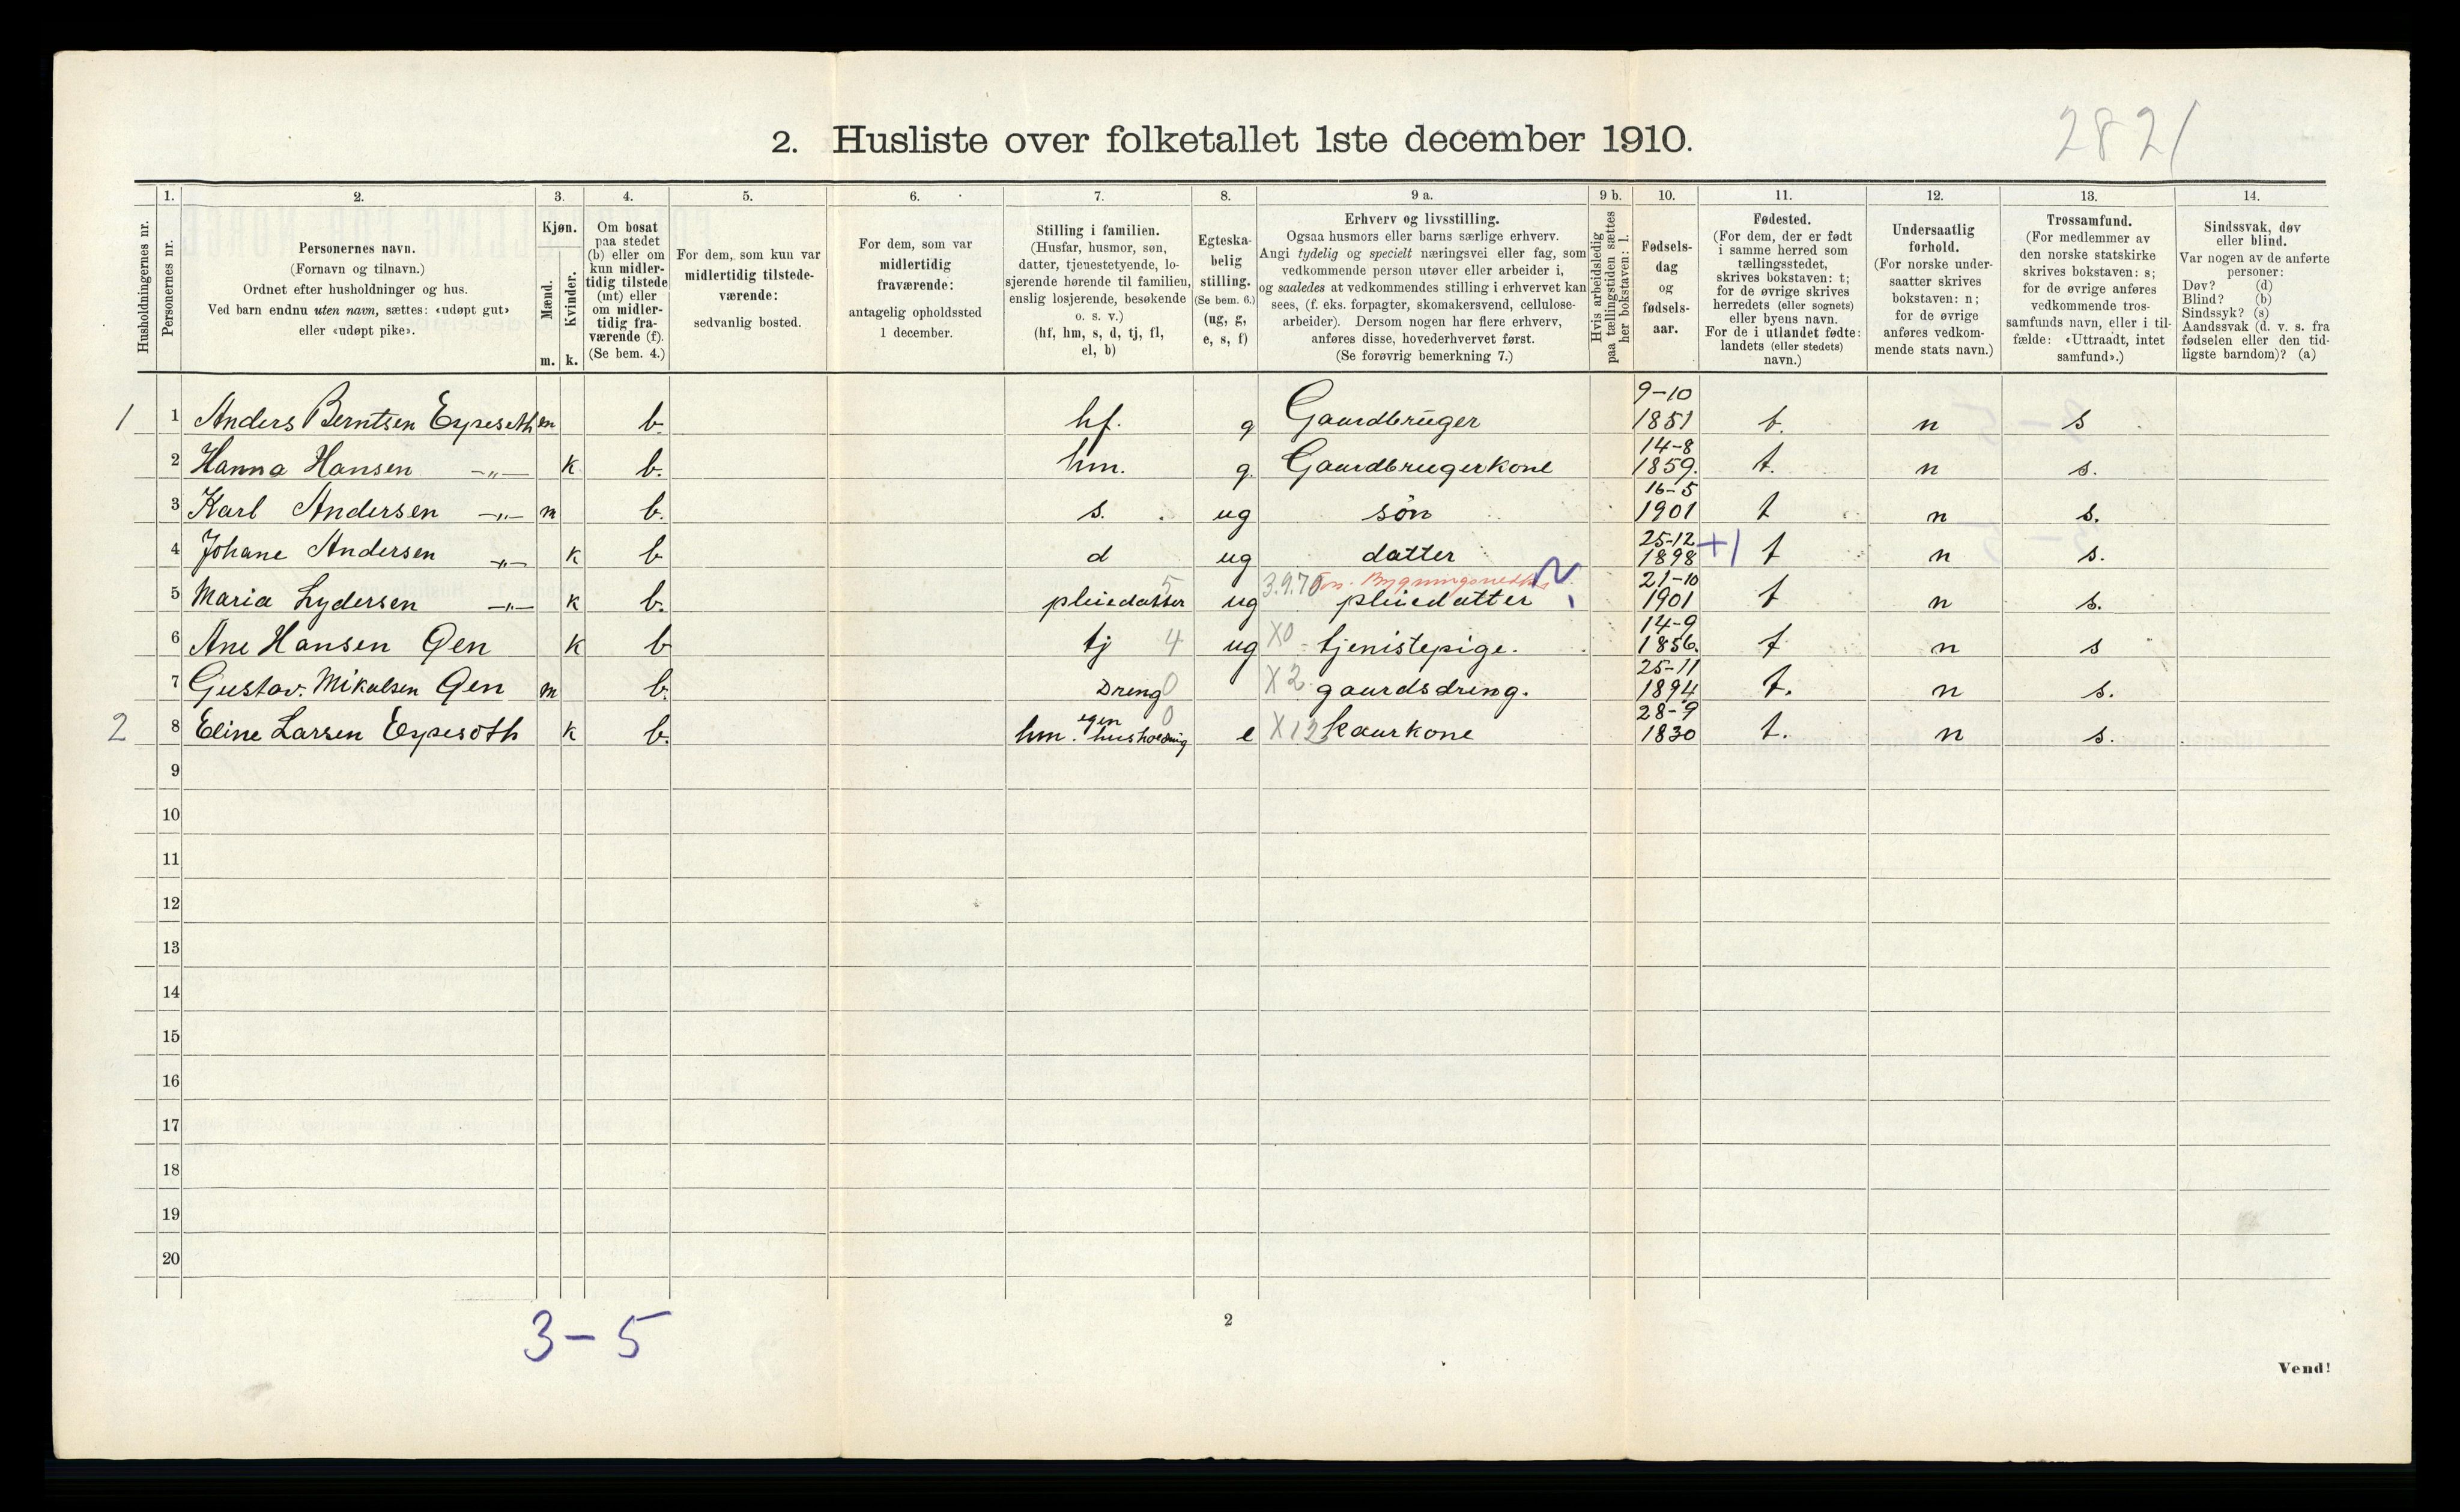 2. Husliste over folketallet 1ste december 1910.
2821
Husholdningernes nr.
1.
Personernes nr.
2.
Personernes navn.
(Fornavn og tilnavn.)
Ordnet efter husholdninger og hus.
Ved barn endnu uten navn, sættes: «udøpt gut»
eller «udøpt pike».
3.
Kjøn.
Mænd.
Kvinder.
m. k.
4.
Om bosat
paa stedet
(b) eller om
kun midler-
tidig tilstede
(mt) eller
om midler-
tidig fra-
værende (f).
(Se bem. 4.)
5.
For dem, som kun var
midlertidig tilstede-
værende:
sedvanlig bosted.
6.
For dem, som var
midlertidig
fraværende:
antagelig opholdssted
1 december.
7.
Stilling i familien.
(Husfar, husmor, søn,
datter, tjenestetyende, lo-
sjerende hørende til familien,
enslig losjerende, besøkende
o. s. v.)
(hf, hm, s, d, tj, fl,
el, b)
8.
Egteska-
belig
stilling.
(Se bem. 6.)
(ug, g,
e, s, f)
9 a.
Erhverv og livsstilling.
Ogsaa husmors eller barns særlige erhverv.
Angi tydelig og specielt næringsvei eller fag, som
vedkommende person utøver eller arbeider i,
og saaledes at vedkommendes stilling i erhvervet kan
sees, (f. eks. forpagter, skomakersvend, cellulose-
arbeider). Dersom nogen har flere erhverv,
anføres disse, hovederhvervet først.
(Se forøvrig bemerkning 7.)
9 b.
Hvis arbeidsledig
paa tællingstiden sættes
her bokstaven: l.
10.
Fødsels-
dag
og
fødsels-
aar.
11.
Fødested.
(For dem, der er født
i samme herred som
tællingsstedet,
skrives bokstaven: t;
for de øvrige skrives
herredets (eller sognets)
eller byens navn.
For de i utlandet fødte:
landets (eller stedets)
navn.)
12.
Undersaatlig
forhold.
(For norske under-
saatter skrives
bokstaven: n;
for de øvrige
anføres vedkom-
mende stats navn.)
13.
Trossamfund.
(For medlemmer av
den norske statskirke
skrives bokstaven: s;
for de øvrige anføres
vedkommende tros-
samfunds navn, eller i til-
fælde: «Uttraadt, intet
samfund».)
14.
Sindssvak, døv
eller blind.
Var nogen av de anførte
personer:
Døv? (d)
Blind? (b)
Sindssyk? (s)
Aandssvak (d. v. s. fra
fødselen eller den tid-
ligste barndom)? (a)
1 1 Anders Berntsen Eypesøth m b. hf. g Gaardbruger 9-10 1851 t. n s
2 Hanna Hansen -„- k b. hm. g. Gaardbrugerkone 14-8 1859. t. n s.
3 Karl Andersen -„- m b. s. ug søn 16-5 1901 t n s.
4 Johane Andersen -„- k b d ug datter 25-12 1898 +1 t n s.
5 Maria Lydersen -„- k b. pleiedatter 5 ug 3.9.70 pleiedatter 21-10 1901 t n s.
6 Ane Hansen Øen k b tj 4 ug X0 tjenistepige. 14-9 1856. t n s
7 Gustav. Mikalsen Øen m b. Dreng 0 X2 gaardsdreng. 25-11 1894 t. n s.
2 8 Eline Larsen Eypesøth k b. hm. egen husholdning 0 e X12 kaarkone 28-9 1830 t. n s.
9
10
11
12
13
14
15
16
17
18
19
20
3-5
2
Vend!